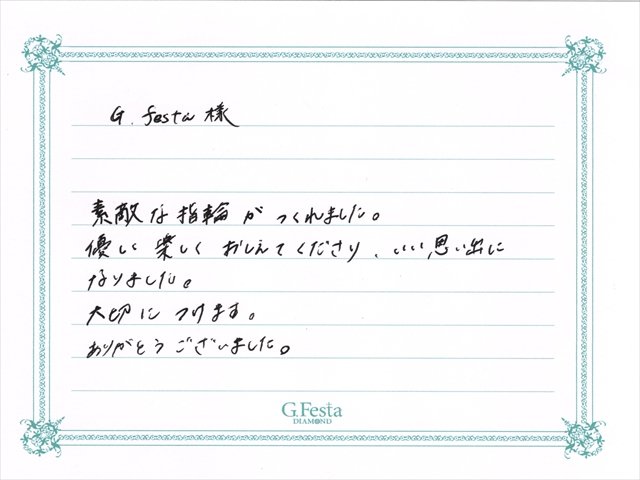 G. festa 様
素敵な指輪が つくれました。
優しい 楽しく おしえてくださり、いい思い出に
なりました。
大切に つけます。
ありがとうございました。
G.Festa
DIAMOND